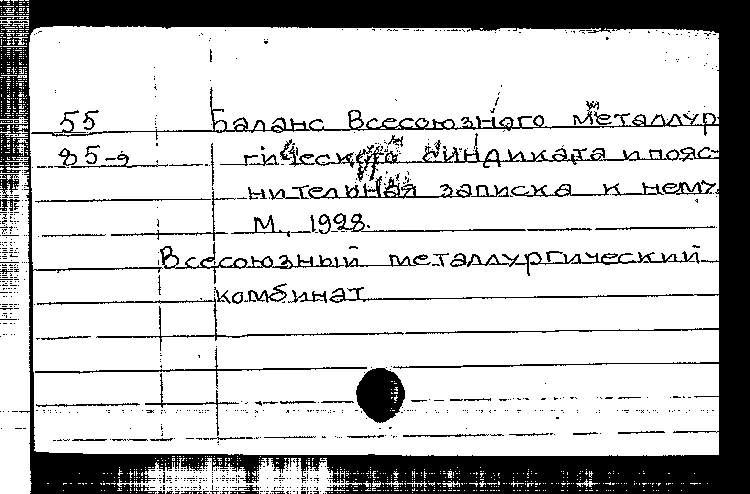 55 Баланс Всесоюзного металлур-
85-9 гического синдиката и пояс-
нительная записка к нему.
М., 1928.
Всесоюзный металлургический
комбинат